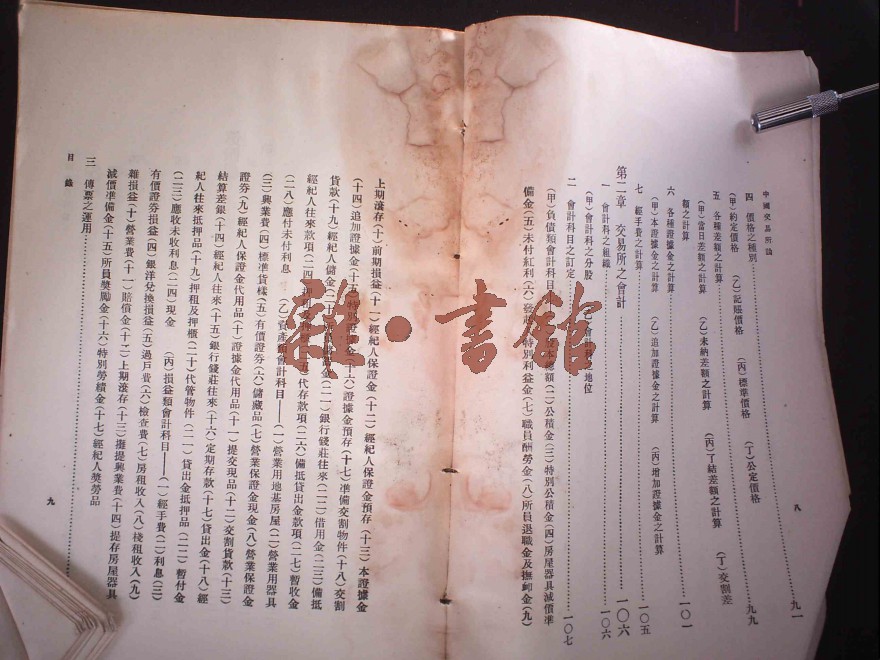 中國交易所論
八
四 價格之種別……九一
(甲)約定價格 (乙)記賬價格 (丙)標準價格 (丁)公定價格
五 各種差額之計算……九九
(甲)當日差額之計算 (乙)未納差額之計算 (丙)了結差額之計算 (丁)交割差
額之計算
六 各種證據金之計算……一〇一
(甲)本證據金之計算 (乙)追加證據金之計算 (丙)增加證據金之計算
七 經手費之計算……一〇五
第二章 交易所之會計……一〇六
一 會計科之組織……一〇六
(甲)會計科之分股 地位
二 會計科目之訂定……一〇七
(甲)負債類會計科目 總額(二)公積金(三)特別公積金(四)房屋器具減價準
備金(五)未付紅利(六) 特別利益金(七)職員酬勞金(八)所員退職金及撫卹金(九)
上期滾存(十)前期損益(十一)經紀人保證金(十二)經紀人保證金預存(十三)本證據金
(十四)追加證據金(十五) 證據金(十六)證據金預存(十七)準備交割物件(十八)交割
貨款(十九)經紀人儲金(二十) (二一)銀行錢莊往來(二二)借用金(二三)備抵
經紀人往來款項(二四) 代存款項(二六)備抵貸出金款項(二七)暫收金
(二八)應付未付利息 (乙)資產類會計科目——(一)營業用地基房屋(二)營業用器具
(三)興業費(四)標準貨樣(五)有價證券(六)儲藏品(七)營業保證金現金(八)營業保證金
證券(九)經紀人保證金代用品(十)證據金代用品(十一)提交現品(十二)交割貨款(十三)
結算差銀(十四)經紀人往來(十五)銀行錢莊往來(十六)定期存款(十七)貸出金(十八)經
紀人往來抵押品(十九)押租及押櫃(二十)代管物件(二一)貸出金抵押品(二二)暫付金
(二三)應收未收利息(二四)現金 (丙)損益類會計科目——(一)經手費(二)利息(三)
有價證券損益(四)銀洋兌換損益(五)過戶費(六)檢查費(七)房租收入(八)棧租收入(九)
雜損益(十)營業費(十一)賠償金(十二)上期滾存(十三)攤提興業費(十四)提存房屋器具
減價準備金(十五)所員獎勵金(十六)特別勞績金(十七)經紀人獎勞品
三 傳票之運用……
目錄
九
書館